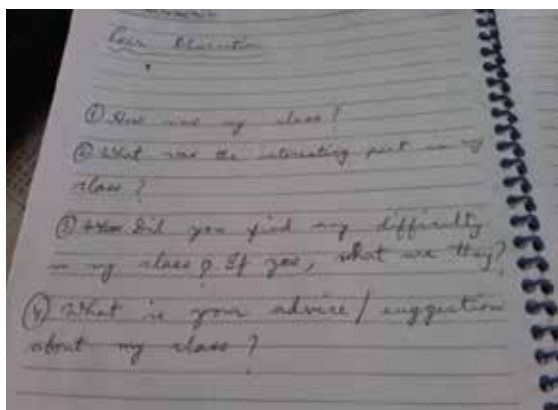 ① How was my class?
② What was the interesting part in my
class?
③ Did you find any difficulty
in my class? If yes, what are they?
④ What is your advice/suggestion
about my class?